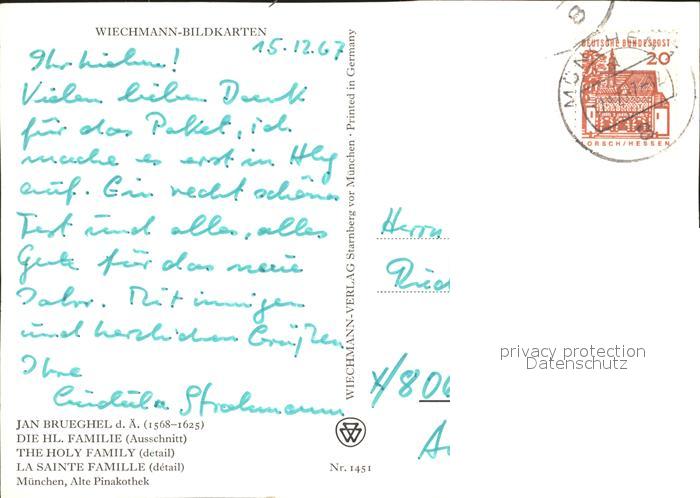 WIECHMANN-BILDKARTEN
15.12.67
Ihr Lieben!
Vielen lieben Dank
für das Paket, ich
mache es erst in Hbg
auf. Ein recht schönes
Fest und alles, alles
Gute für das neue
Jahr. Mit innigen
und herzlichen Grüßen
Ihre
Strohmann
JAN BRUEGHEL d. Ä. (1568–1625)
DIE HL. FAMILIE (Ausschnitt)
THE HOLY FAMILY (detail)
LA SAINTE FAMILLE (détail)
München, Alte Pinakothek
Nr. 1451
WIECHMANN-VERLAG Starnberg vor München · Printed in Germany
DEUTSCHE BUNDESPOST
20
LORSCH/HESSEN
MÜNCHEN
8
Herrn
privacy protection
Datenschutz